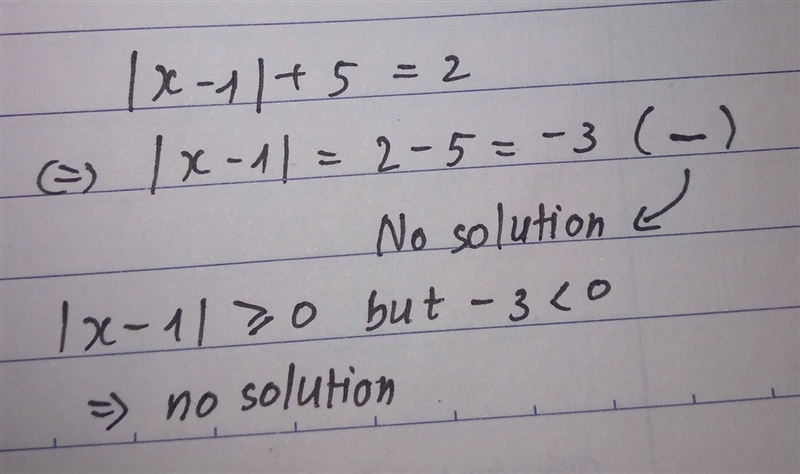 |x - 1| + 5 = 2
(=) |x - 1| = 2 - 5 = -3 (-)
No solution
|x - 1| ⩾ 0 but - 3 < 0
=> no solution